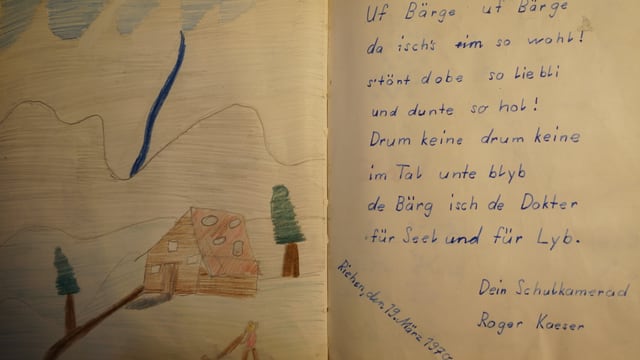 Uf Bärge uf Bärge
da isch's eim so wohl!
s'tönt dobe so liebli
und dunte so hol!
Drum keine drum keine
im Tal unte blyb
de Bärg isch de Dokter
für Seel und für Lyb.
Dein Schulkamerad
Roger Kaeser
Riehen, den 19. März 1970